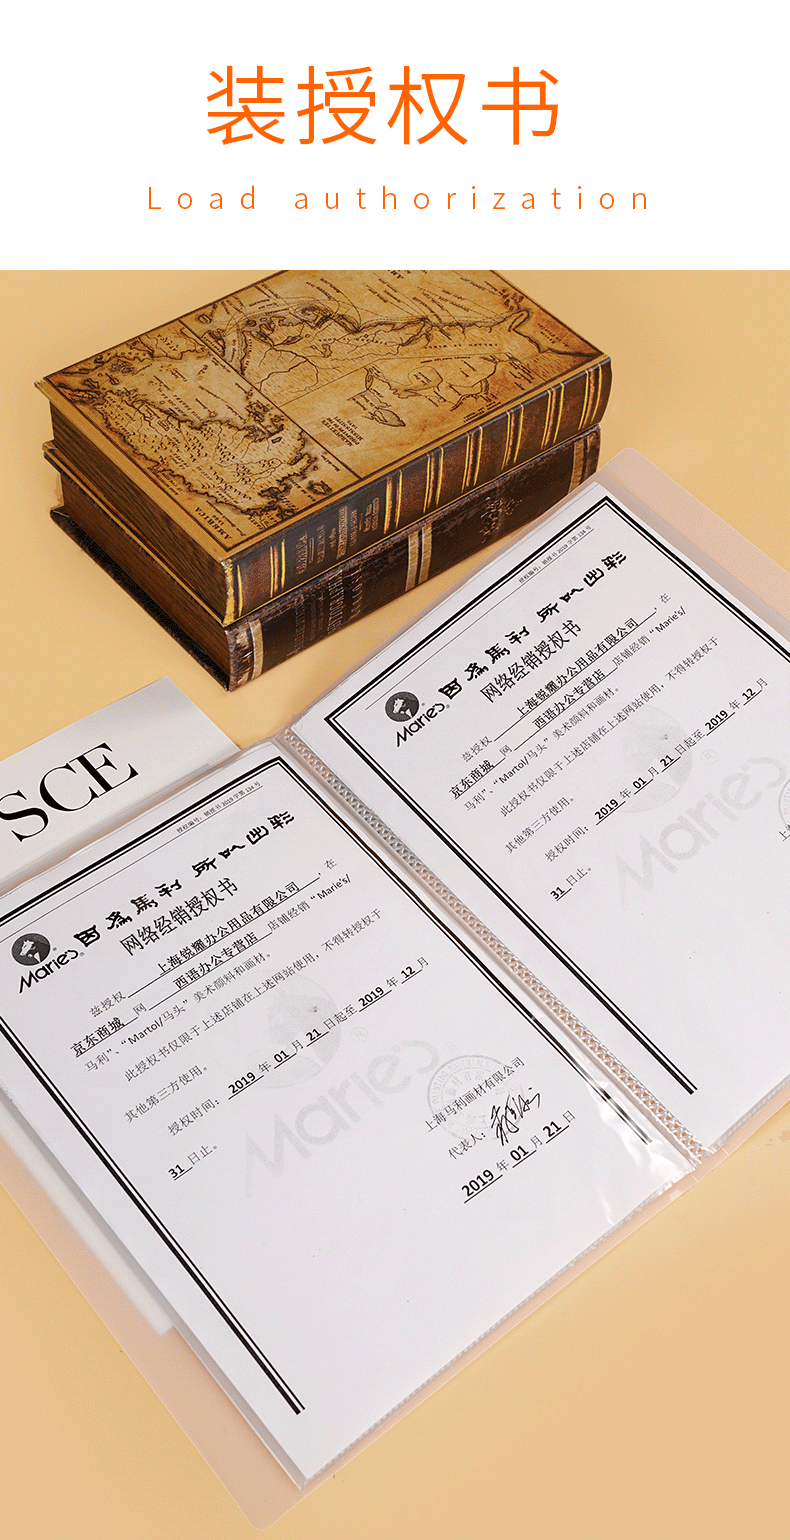 装授权书
Load authorization
AMERICA
SCE
授权编号：销授书2019字第134号
Marie's
网络经销授权书
兹授权 上海锐耀办公用品有限公司 ，在
京东商城 网 西语办公专营店 店铺经销“Marie's/
马利”、“Martol/马头”美术颜料和画材。
此授权书仅限于上述店铺在上述网站使用，不得转授权于
其他第三方使用。
授权时间： 2019 年 01 月 21 日起至 2019 年 12 月
31 日止。
Marie's
上海马利画材有限公司
代表人：
2019 年 01 月 21 日
授权编号：销授书2019字第134号
Marie's
网络经销授权书
兹授权 上海锐耀办公用品有限公司 ，在
京东商城 网 西语办公专营店 店铺经销“Marie's/
马利”、“Martol/马头”美术颜料和画材。
此授权书仅限于上述店铺在上述网站使用，不得转授权于
其他第三方使用。
授权时间： 2019 年 01 月 21 日起至 2019 年 12 月
31 日止。
Marie's